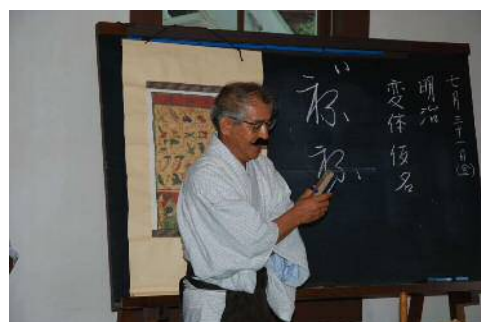 七月三十一日(金)
明治
変体仮名